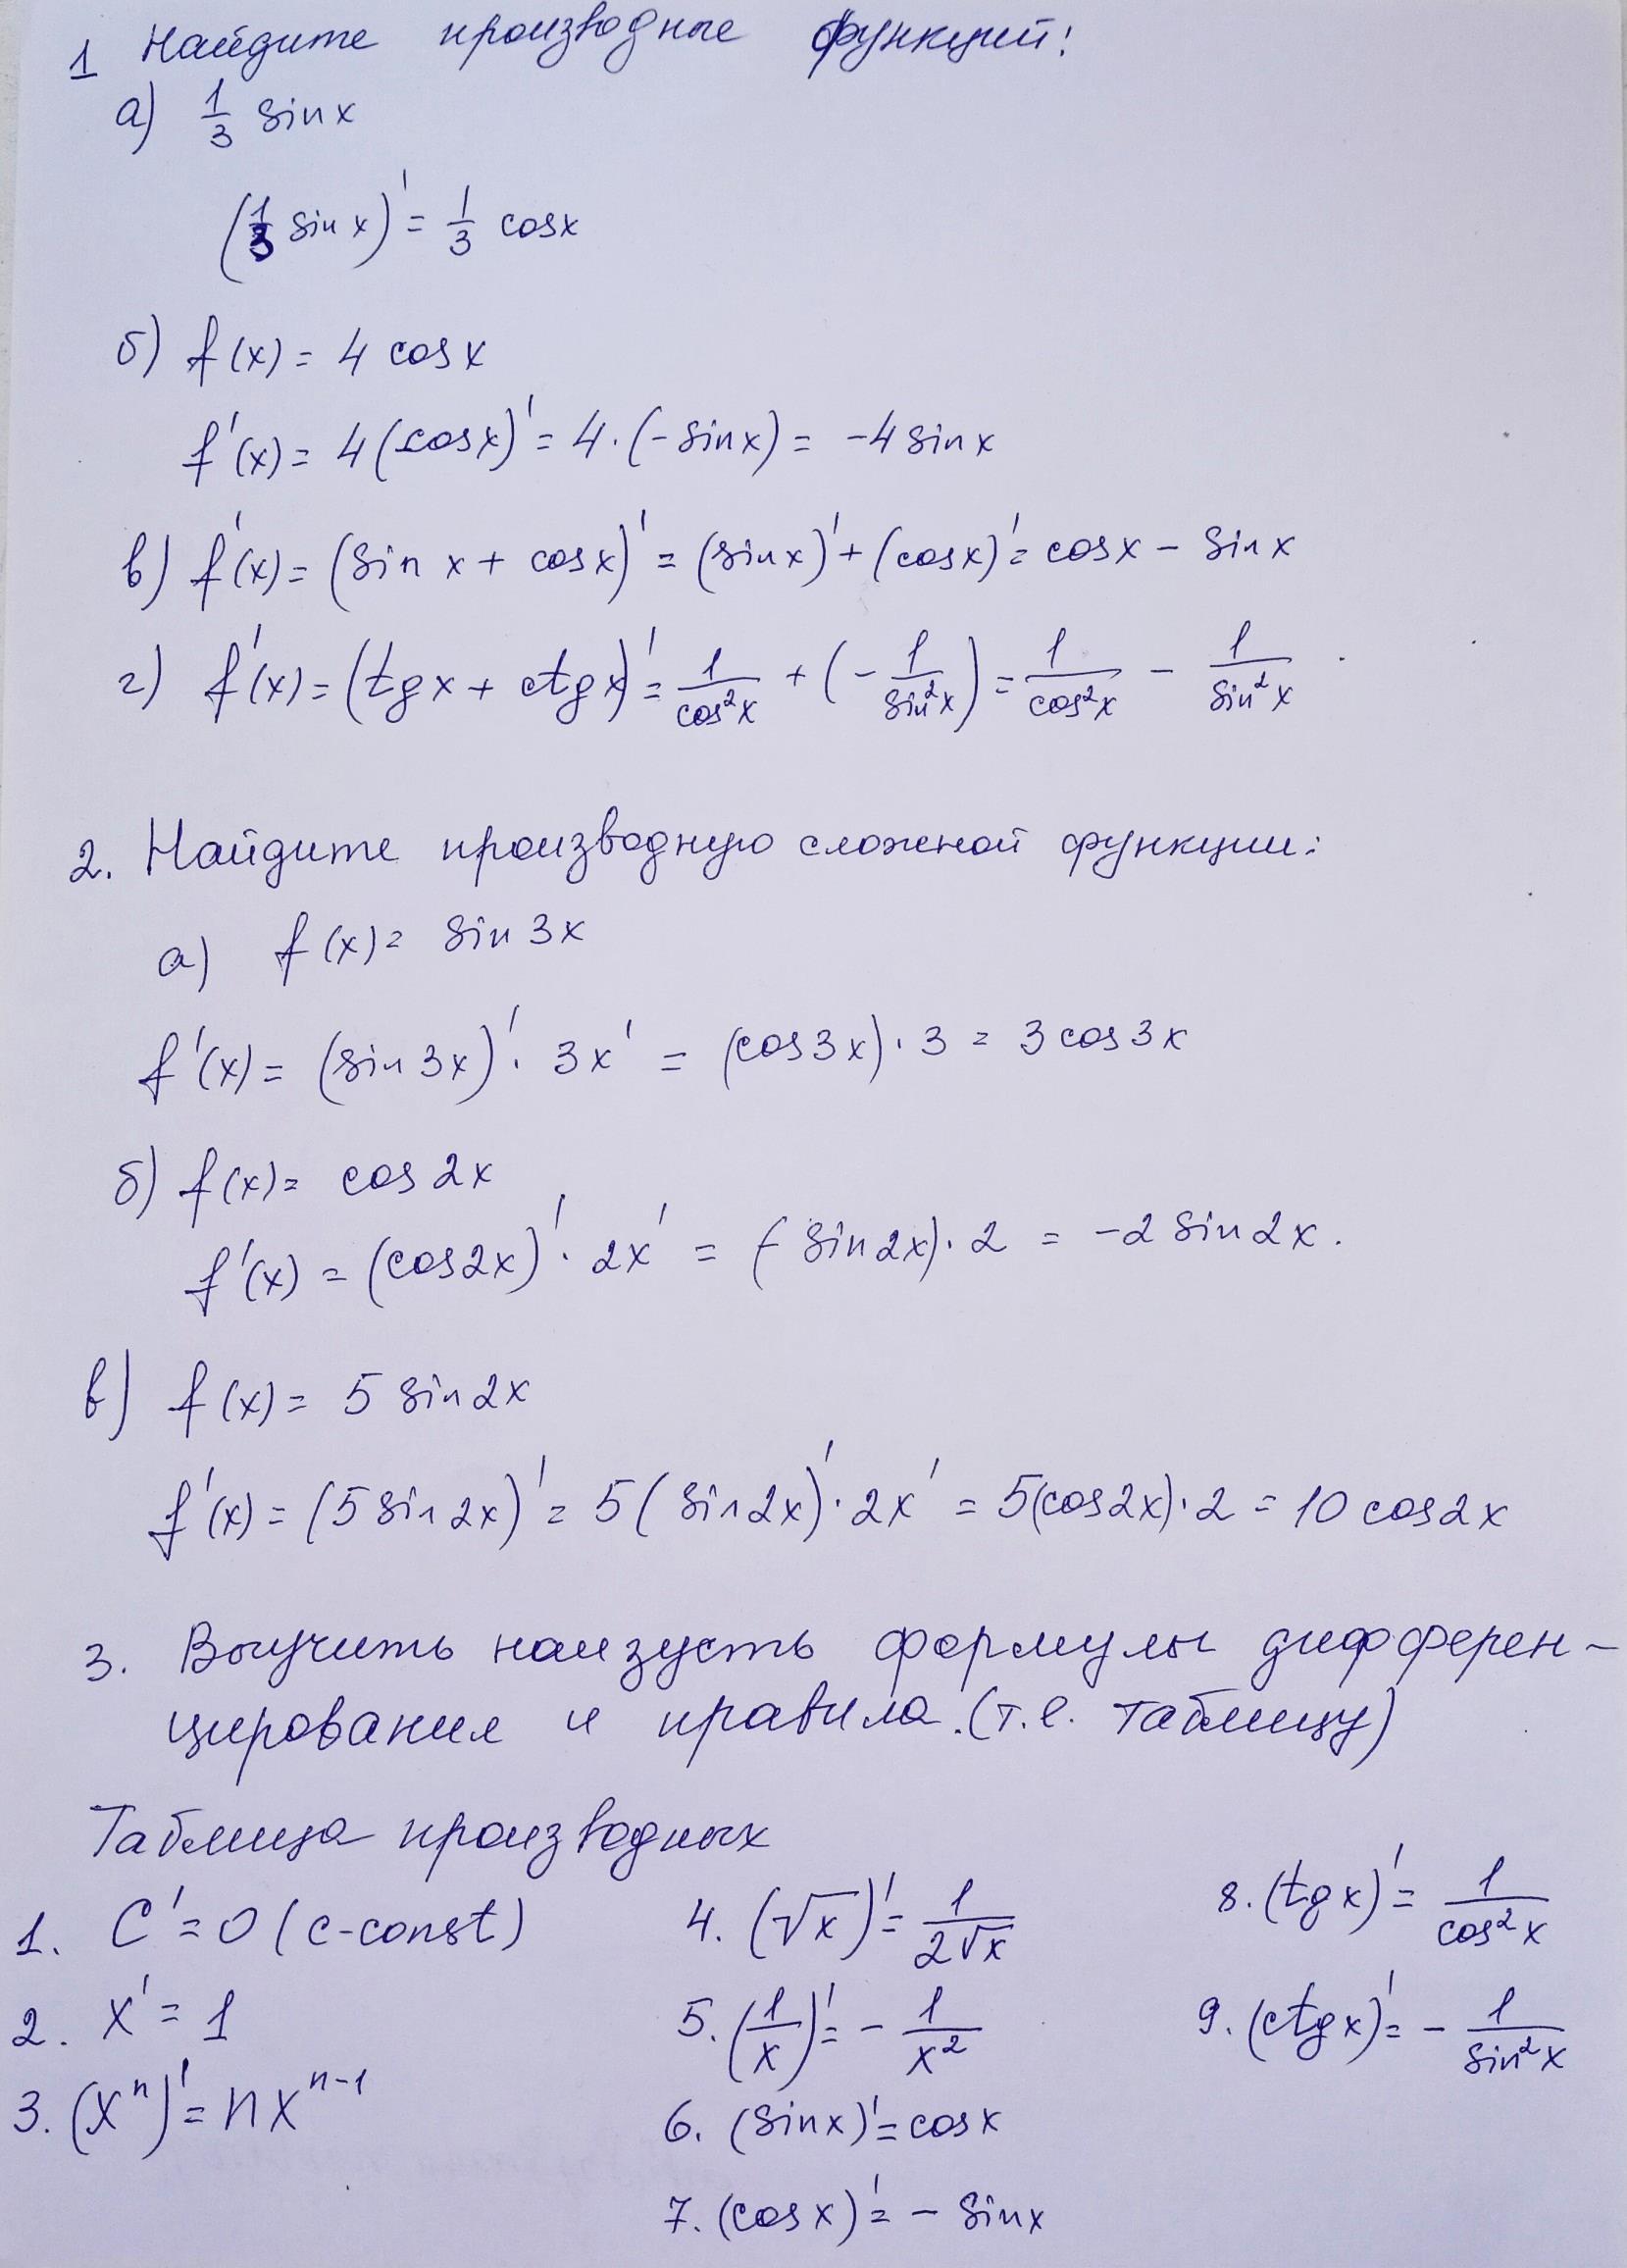 1 Найдите производные функций:
а) 1/3 sinx
(1/3 sin x)' = 1/3 cosx
б) f(x) = 4 cosx
f'(x) = 4(cosx)' = 4·(-sinx) = -4 sinx
в) f'(x) = (sin x + cosx)' = (sinx)' + (cosx)' = cosx - sinx
г) f'(x) = (tgx + ctgx)' = 1/cos²x + (- 1/sin²x) = 1/cos²x - 1/sin²x.
2. Найдите производную сложной функции:
а) f(x) = sin 3x
f'(x) = (sin 3x)' · 3x' = (cos3x)·3 = 3 cos3x
б) f(x) = cos 2x
f'(x) = (cos2x)' · 2x' = (- sin2x)·2 = -2 sin2x.
в) f(x) = 5 sin2x
f'(x) = (5 sin 2x)' = 5 (sin2x)' · 2x' = 5(cos2x)·2 = 10 cos2x
3. Выучить наизусть формулы дифферен-
цирования и правила. (т.е. таблицу)
Таблица производных
1. C' = 0 (c-const)
2. x' = 1
3. (xⁿ)' = nxⁿ⁻¹
4. (√x)' = 1/(2√x)
5. (1/x)' = - 1/x²
6. (sinx)' = cosx
7. (cosx)' = - sinx
8. (tgx)' = 1/cos²x
9. (ctgx)' = - 1/sin²x